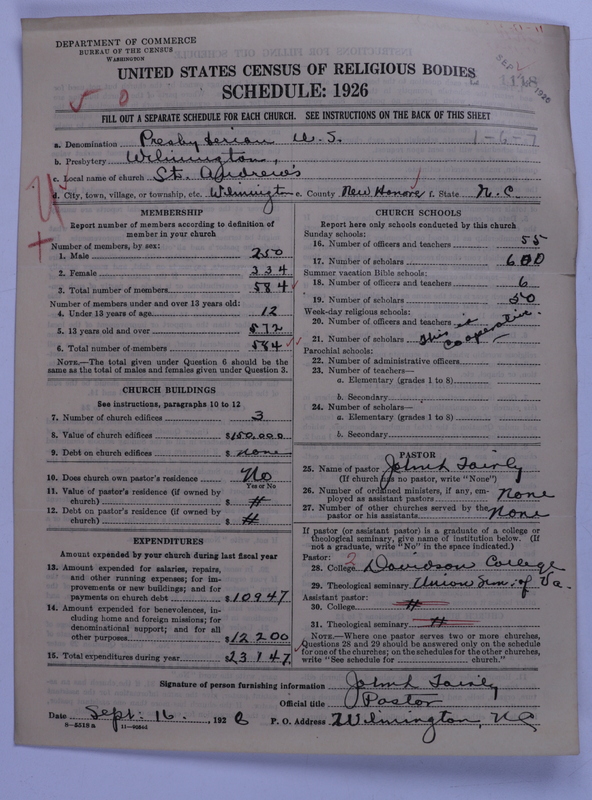 DEPARTMENT OF COMMERCE
BUREAU OF THE CENSUS
WASHINGTON
SEP 2 1926
1118
UNITED STATES CENSUS OF RELIGIOUS BODIES
SCHEDULE: 1926
5 0
FILL OUT A SEPARATE SCHEDULE FOR EACH CHURCH. SEE INSTRUCTIONS ON THE BACK OF THIS SHEET
a. Denomination Presbyterian U.S. 1-6-7
b. Presbytery Wilmington,
c. Local name of church St. Andrew's
d. City, town, village, or township, etc. Wilmington e. County New Hanove f. State N.C.
MEMBERSHIP
Report number of members according to definition of
member in your church
Number of members, by sex:
1. Male 250
2. Female 334
3. Total number of members 584
Number of members under and over 13 years old:
4. Under 13 years of age 12
5. 13 years old and over 572
6. Total number of members 584
NOTE.—The total given under Question 6 should be the
same as the total of males and females given under Question 3.
CHURCH BUILDINGS
See instructions, paragraphs 10 to 12
7. Number of church edifices 3
8. Value of church edifices $150,000
9. Debt on church edifices $ none
10. Does church own pastor's residence? No
Yes or No
11. Value of pastor's residence (if owned by
church) $ #
12. Debt on pastor's residence (if owned by
church) $ #
EXPENDITURES
Amount expended by your church during last fiscal year
13. Amount expended for salaries, repairs,
and other running expenses; for im-
provements or new buildings; and for
payments on church debt $10947
14. Amount expended for benevolences, in-
cluding home and foreign missions; for
denominational support; and for all
other purposes $12200
15. Total expenditures during year $23147
CHURCH SCHOOLS
Report here only schools conducted by this church
Sunday schools:
16. Number of officers and teachers 55
17. Number of scholars 600
Summer vacation Bible schools:
18. Number of officers and teachers 6
19. Number of scholars 50
Week-day religious schools:
20. Number of officers and teachers
21. Number of scholars This is cooperative.
Parochial schools:
22. Number of administrative officers
23. Number of teachers—
a. Elementary (grades 1 to 8)
b. Secondary
24. Number of scholars—
a. Elementary (grades 1 to 8)
b. Secondary
PASTOR
25. Name of pastor John H Fairly
(If church has no pastor, write "None")
26. Number of ordained ministers, if any, em-
ployed as assistant pastors None
27. Number of other churches served by the
pastor or his assistants None
If pastor (or assistant pastor) is a graduate of a college or
theological seminary, give name of institution below. (If
not a graduate, write "No" in the space indicated.)
Pastor: 2
28. College Davidson College
29. Theological seminary Union Sem. of Va.
Assistant pastor:
30. College #
31. Theological seminary #
NOTE.—Where one pastor serves two or more churches,
Questions 28 and 29 should be answered only on the schedule
for one of the churches; on the schedules for the other churches,
write "See schedule for church."
Signature of person furnishing information John H Fairly
Official title Pastor
Date Sept. 16, 1926 P. O. Address Wilmington, NC
8-5518 a